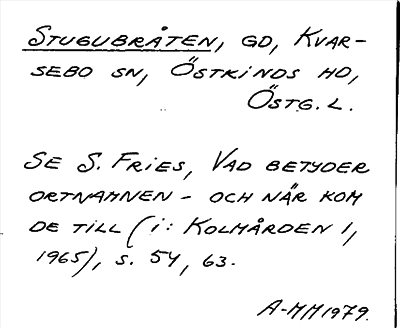 STUGUBRÅTEN, GD, KVAR-
SEBO SN, ÖSTKINDS HD,
ÖSTG. L.
SE S. FRIES, VAD BETYDER
ORTNAMNEN - OCH NÄR KOM
DE TILL (I: KOLMÅRDEN 1,
1965), S. 54, 63.
A-MM1979.